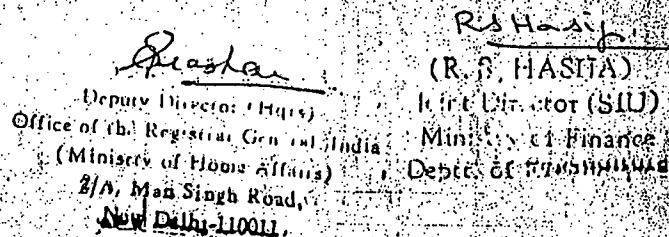 Deputy Director (Hqrs)
Office of the Registrar General, India
(Ministry of Home Affairs)
2/A, Man Singh Road,
New Delhi-110011.
(R. S. HASIJA)
Joint Director (SIU)
Ministry of Finance
Deptt. of